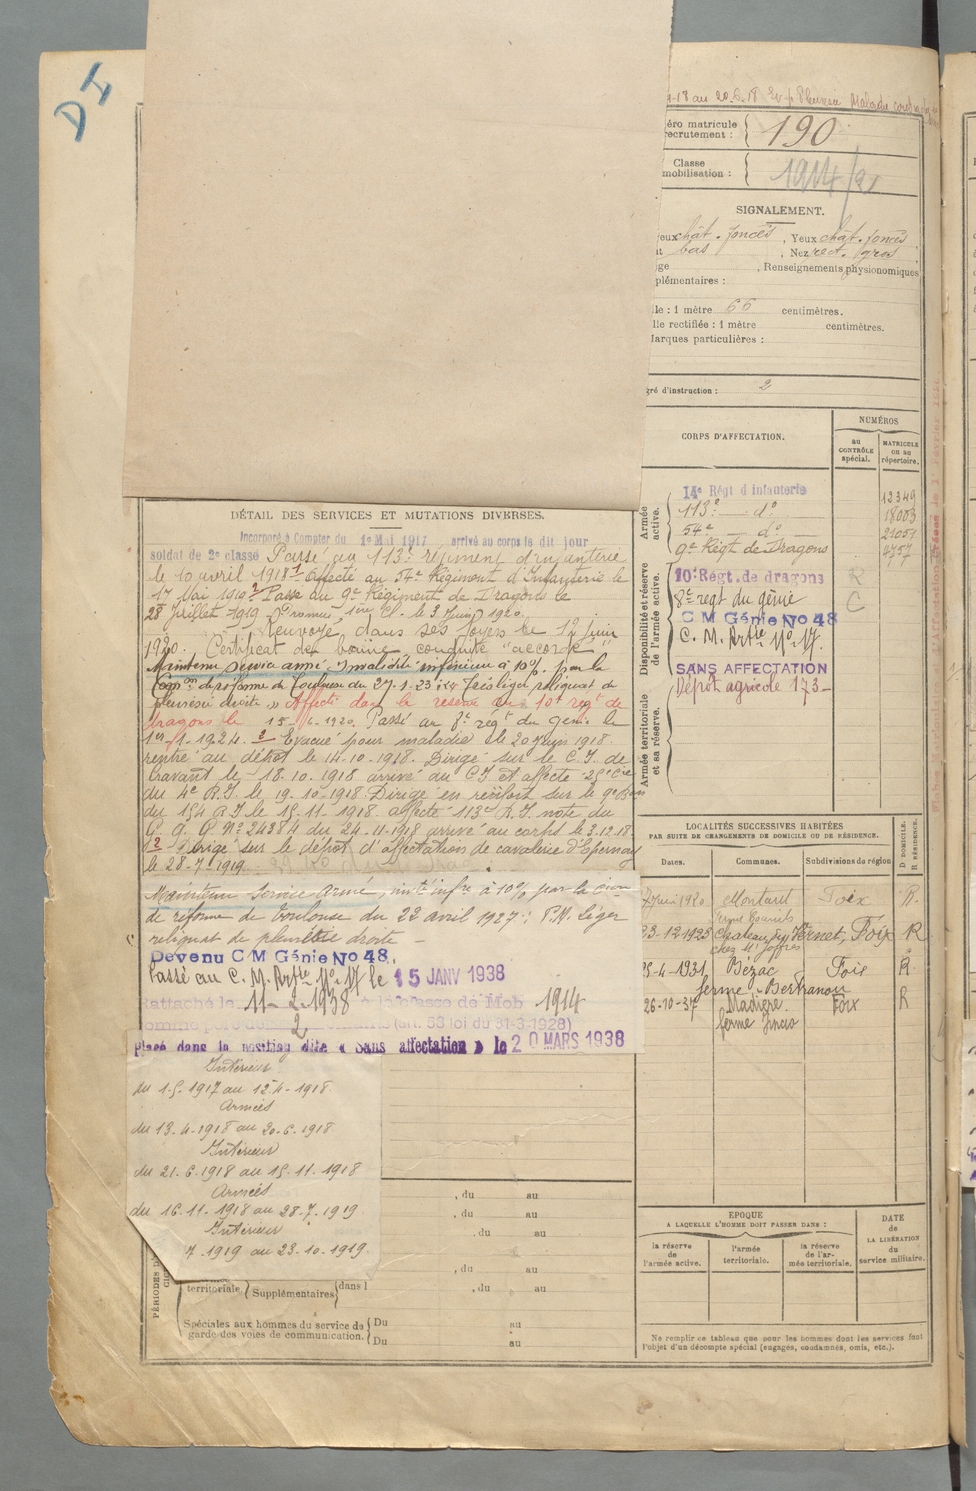 DI
au 20.6.18
éro matricule
recrutement : 190
Classe
mobilisation : 1914/
SIGNALEMENT.
eux chât. foncés, Yeux chât. foncés
bas, Nez rect. gros
ge , Renseignements physionomiques
plémentaires :
le : 1 mètre 66 centimètres.
lle rectifiée : 1 mètre centimètres.
larques particulières :
gré d'instruction : 2
CORPS D'AFFECTATION.
NUMÉROS
au CONTRÔLE spécial.
MATRICULE ou au répertoire.
Armée active.
14e Régt d'infanterie 12349
113e do 18003
54e do 21051
9e Régt de Dragons
Disponibilité et réserve de l'armée active.
10e Régt. de dragons R
8e regt du génie C
C M Génie No 48
C. M. Artie No 17.
SANS AFFECTATION
Dépôt agricole 173
Armée territoriale et sa réserve.
DÉTAIL DES SERVICES ET MUTATIONS DIVERSES.
Incorporé à Compter du 1er Mai 1917 arrivé au corps le dit jour
soldat de 2e classe Passé au 113e régiment d'infanterie
le 10 avril 1918 Affecté au 54e Régiment d'Infanterie le
17 Mai 1918 Passé au 9e Régiment de Dragons le
28 Juillet 1919 Promu 1ère Cl. le 3 Juin 1920.
Renvoyé dans ses foyers le 12 Juin
1920. Certificat de bonne conduite "accordé"
Maintenu service armé invalidité inférieure à 10% par la
Comon de réforme de Toulouse du 27-1-23 très léger reliquat de
pleurésie droite » Affecté dans la réserve au 10e régt de
dragons le 15 1920. Passé au 8e régt du génie le
1er-1-1924. 2 Evacué pour maladie le 20 Juin 1918.
rentré au dépôt le 14-10-1918. Dirigé sur le C.I. de
Cravant le 18.10.1918 arrivé au C.I et affecté 25e Cie
du 4e R.I. le 19-10-1918. Dirigé en renfort sur le 9e Bon
du 154 R I le 15-11-1918 affecté 113e R.I. note du
G. Q. G. No 24384 du 24-11-1918 arrivé au corps le 3.12.18.
Dirigé sur le dépôt d'affectation de cavalerie d'Epernay
le 28-7-1919
Maintenu Service Armé, invté infre à 10% par la Cion
de réforme de Toulouse du 22 avril 1927 : P.N. léger
reliquat de pleurésie droite -
Devenu C M Génie No 48.
Passé au C. M. Artie No 17 le 15 JANV 1938
Rattaché le 11-2-1938 à la classe de Mob 1914
comme père de 2 enfants (art. 58 loi du 31-3-1928)
Placé dans la position dite « Sans affectation » le 20 MARS 1938
Intérieur
du 1-5-1917 au 12-4-1918
Armées
du 13-4-1918 au 20-6-1918
Intérieur
du 21-6-1918 au 15-11-1918
Armées
du 16-11-1918 au 28-7-1919
Intérieur
7-1919 au 23-10-1919.
LOCALITÉS SUCCESSIVES HABITÉES
PAR SUITE DE CHANGEMENTS DE DOMICILE OU DE RÉSIDENCE.
D DOMICILE. R RÉSIDENCE.
Dates. Communes. Subdivisions de région
7 Juin 1920 Montaut Foix R.
23-12-1923 Chateau du Vernet, Foix R
chez Mr Joffres
25-4-1931 Bézac Foix R
ferme Bertranou
26-10-37 Madière Foix R
ferme
, du au
, du au
, du au
, du au
territoriale Supplémentaires dans l , du au
PÉRIODES D
Spéciales aux hommes du service de garde des voies de communication. Du au
Du au
EPOQUE
A LAQUELLE L'HOMME DOIT PASSER DANS :
la réserve de l'armée active.
l'armée territoriale.
la réserve de l'armée territoriale.
DATE de LA LIBÉRATION du service militaire.
Ne remplir ce tableau que pour les hommes dont les services font
l'objet d'un décompte spécial (engagés, condamnés, omis, etc.).